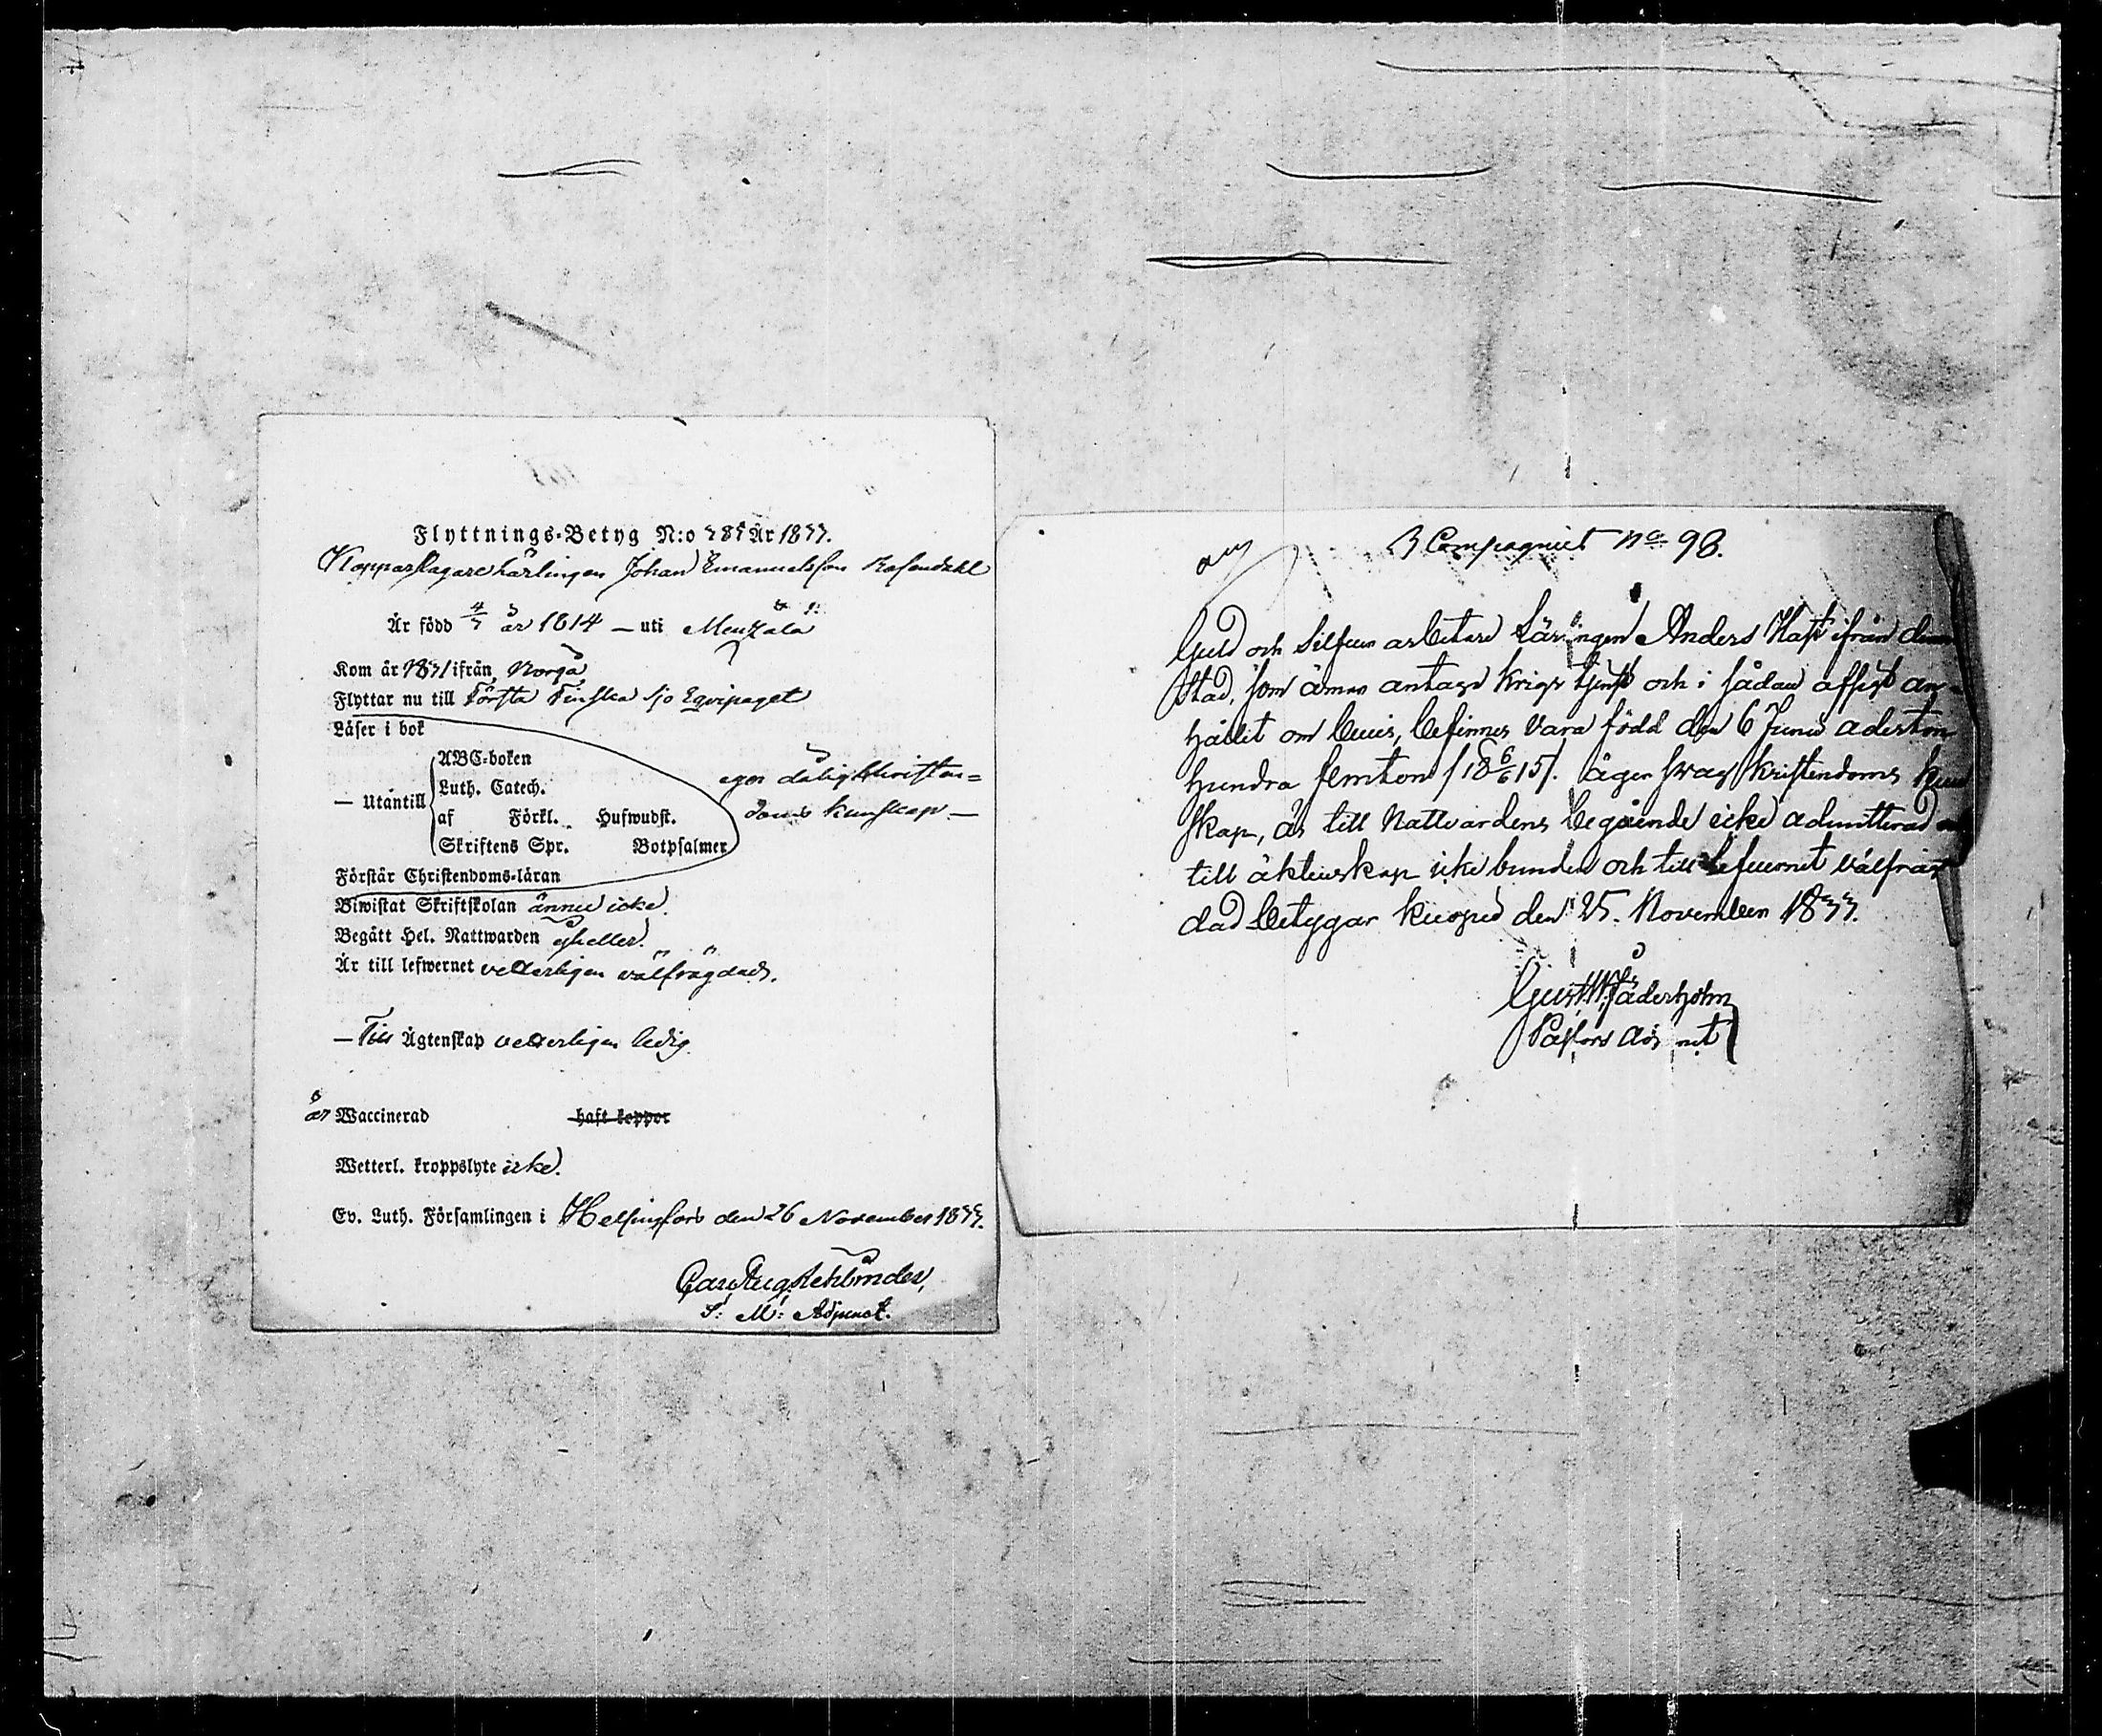 Flyttnings-Betyg N:o 285 År 1833.
Kopparslagare Lärlingen Johan Emanuelsson Rosendahl
År född 4/7 år 1814 — uti Mentzälä
Kom år 1831 ifrån Borgå
Flyttar nu till Första Finska Sjö Eqvipaget
Läser i bok
— Utantill
ABC-boken
Luth. Catech.
af Förkl. Hufwudst.
Skriftens Spr. Botpsalmer
eger dålig Christen=
doms kunskap —
Förstår Christendoms-läran
Biwistat Skriftskolan ännu icke.
Begått Hel. Nattwarden ej heller.
Är till lefwernet vetterligen välfrägdad.
— Till Ägtenskap vetterligen ledig.
är Waccinerad haft koppor
Wetterl. kroppslyte icke.
Ev. Luth. Församlingen i Helsingfors den 26 November 1833.
Carl Aug.
S: M: Adjunct.
3 Compagniet No 98.
Guld och Silfver arbetare Lärlingen Anders Hast ifrån denna
Stad, som ämnar antaga Krigs tjenst och i sådan afsigt an-
hållit om bevis, befinnes vara född den 6 Junii aderton
hundra femton /18 6/6 15/. äger svag Kristendoms kun
skap, är till Nattvardens begående icke admitterad
till äktenskap icke bunden och till lefvernet välfräg
dad betygar Kuopio den 25. November 1833.
Gust. W. Jäderholm
Pastors Adjunct